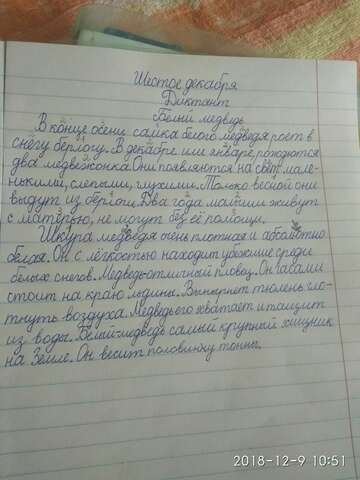 Шестое декабря
Диктант
Белый медведь
В конце осени самка белого медведя роет в
снегу берлогу. В декабре или январе рождаются
два медвежонка. Они появляются на свет мале-
нькими, слепыми, глухими. Только весной они
выдут из берлоги. Два года малыши живут
с матерью, не могут без её помощи.
Шкура медведя очень плотная и абсолютно
белая. Он с лёгкостью находит убежище среди
белых снегов. Медведь отличный пловец. Он часами
стоит на краю льдины. Вынырнет тюлень гло-
тнуть воздуха. Медведь его хватает и тащит
из воды. Белый медведь самый крупный хищник
на Земле. Он весит половинку тонны.
2018-12-9 10:51